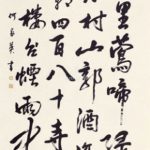 里鶯啼
村山郭酒
四百八十寺
樓台煙雨